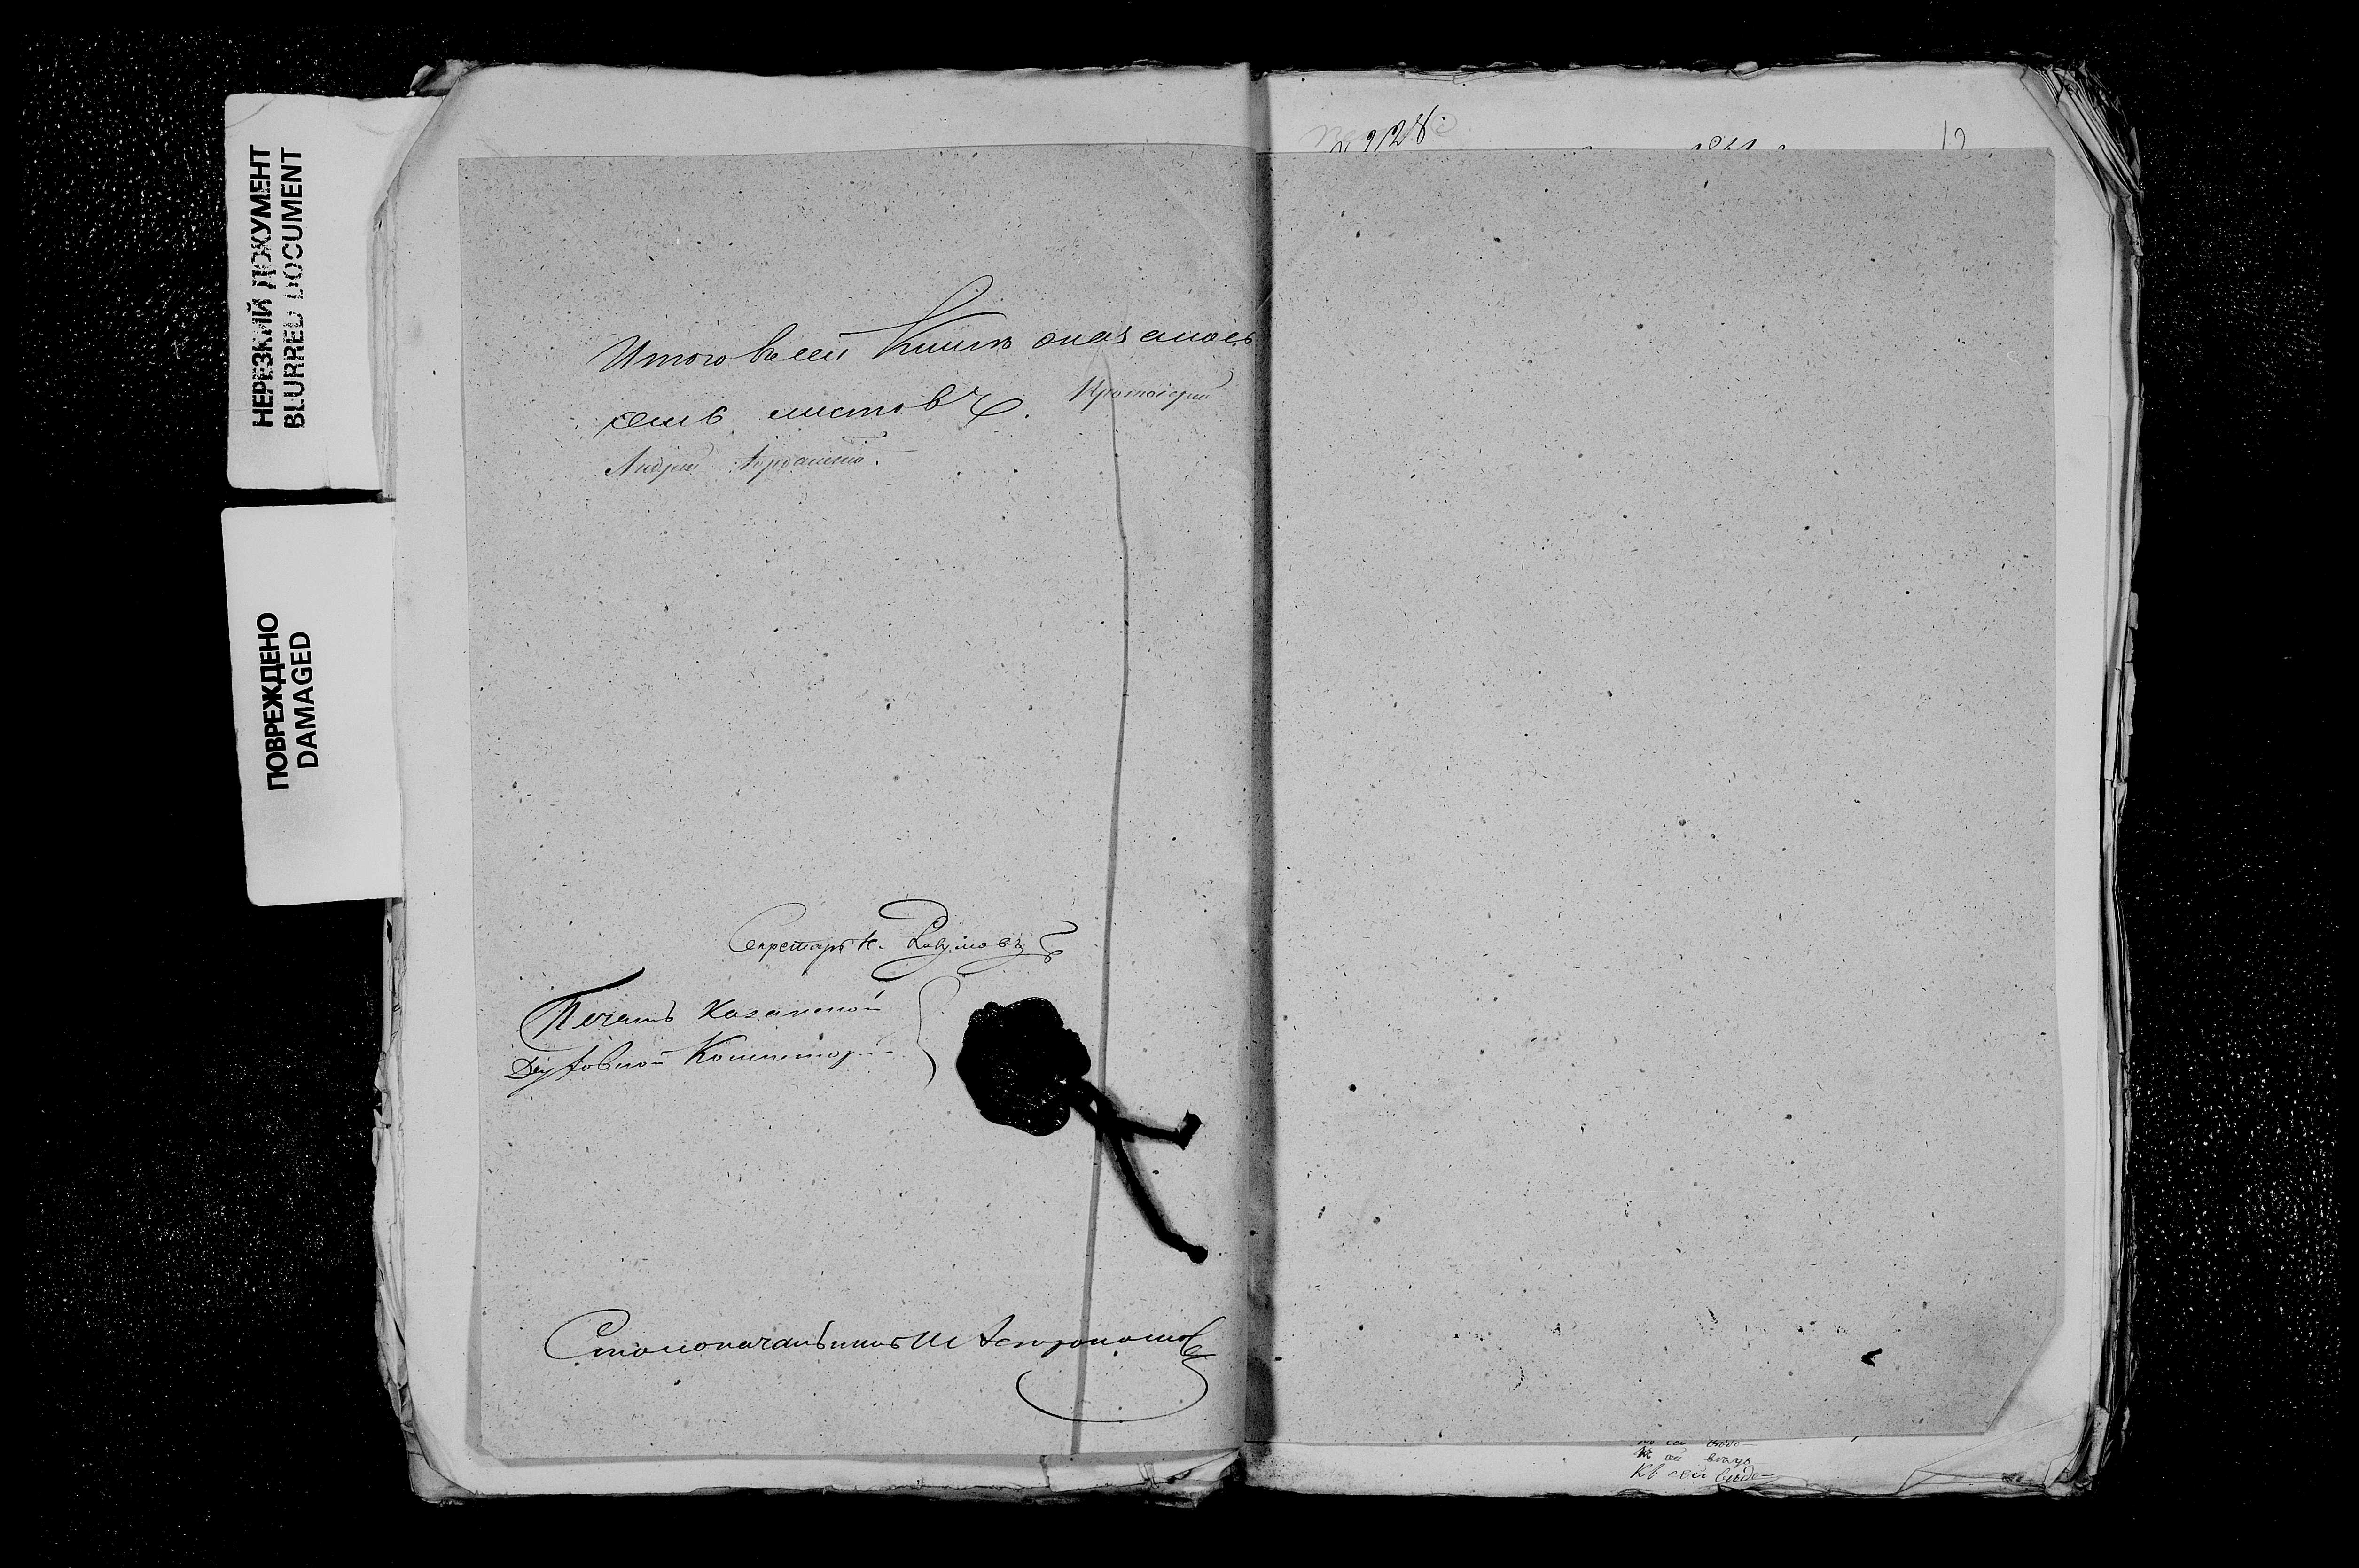 НЕРЕЗКИЙ ДОКУМЕНТ
BLURRED DOCUMENT
ПОВРЕЖДЕНО
DAMAGED
Итого въ сей Книгѣ оказалось
семь листовъ. Протоіерей
Андрей
Секретарь Н. Разумовъ
Печать Казанской
Духовной Консисторіи
Столоначальникъ
228
12
Къ сей